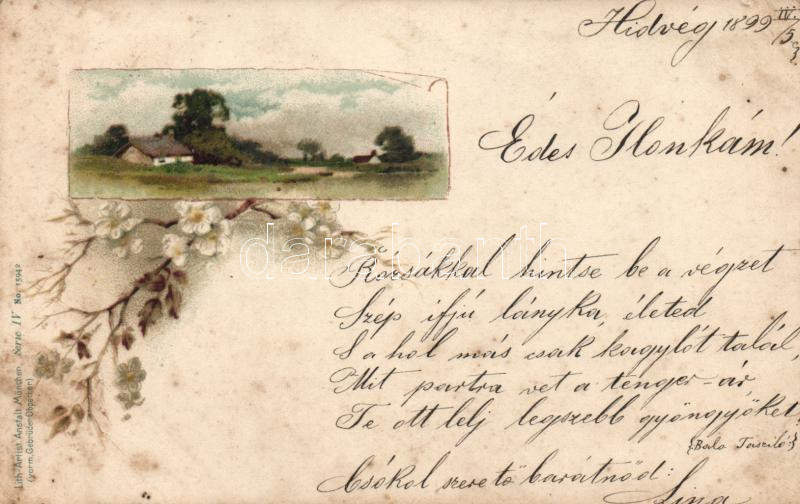 Hidvég 1899 IV/5
Édes Ilonkám!
Rózsákkal hintse be a végzet
Szép ifjú lányka életed
S a hol más csak kagylót talál,
Mit partra vet a tenger-ár
Te ott lelj legszebb gyöngyöket!
Csókol szerető barátnőd:
Lina
Lith.-Artist. Anstalt München Serie IV No. 15942
(vorm. Gebrüder Obpacher)
darabanth